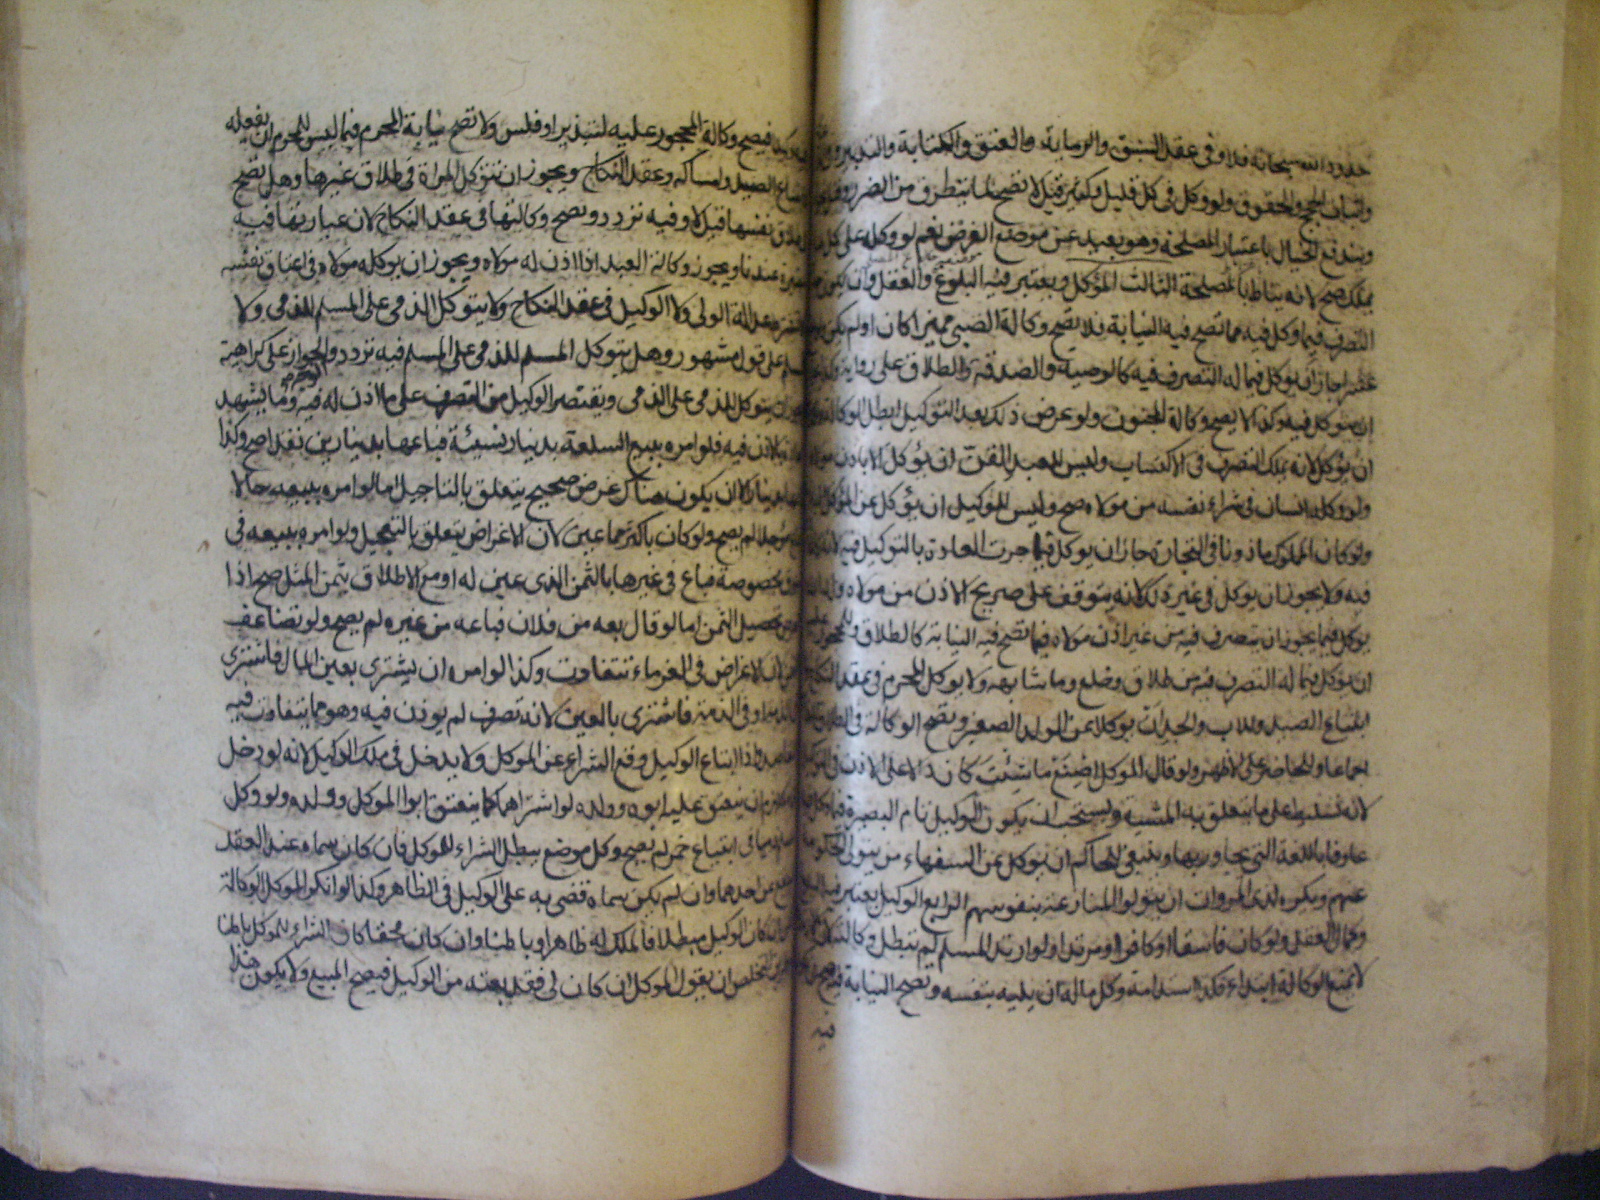 حدود الله سبحانه فلا وفى عقد السبق والرماية والعتق والكتابة والتدبير
واثبات الحجج والحقوق ولو وكل فى كل قليل وكثير قيل لا تصح لما يتطرق من الضرر
ويندفع الخيال باعتبار المصلحة وهو بعيد عن موضع الفرض نعم لو وكله على كل ما
يملك صح لانه يناط بالمصلحة الثالث الموكل ويعتبر فيه البلوغ والعقل وان يكون
التصرف فيما وكل فيه مما تصح فيه النيابة فلا تصح وكالة الصبي مميزا كان او لم يكن
عشرا جاز ان يوكل فيما له التصرف فيه كالوصية والصدقة والطلاق على رواية وكذا
ان يتوكل فيه وكذا لا يصح وكالة المجنون ولو عرض ذلك بعد التوكيل ابطل الوكالة
ان يوكل لانه يملك التصرف فى الاكتساب وليس للعبد القن ان يوكل الا باذن مولاه
ولو وكله انسان فى شراء نفسه من مولاه صح وليس للوكيل ان يوكل عن الموكل
ولو كان المملوك ماذونا فى التجارة جاز ان يوكل فيما جرت العادة بالتوكيل فيه
فيه ولا يجوز ان يوكل فى غير ذلك لانه يتوقف على صريح الاذن من مولاه وله ان
يوكل فيما يجوز ان يتصرف فيه من غير اذن مولاه فيما تصح فيه النيابة كالطلاق وللمحجور
ان يوكل فيما له التصرف فيه من طلاق وخلع وما شابهه ولا يوكل المحرم فى عقد النكاح
ابتياع الصيد وللاب والجد ان يوكلا عن الولد الصغير وتصح الوكالة فى الطلاق
اجماعا وللحاضر على الاظهر ولو قال الموكل اصنع ما شئت كان دالا على الاذن فى
لانه تسليط على ما يتعلق به المشية ويستحب ان يكون الوكيل تام البصيرة
عارفا باللغة التى يحاور بها وينبغى للحاكم ان يوكل عن السفهاء من يتولى الحكومة
عنهم ويكره لذوى المروات ان يتولوا المنازعة بنفوسهم الرابع الوكيل يعتبر فيه
وكمال العقل ولو كان فاسقا او كافرا او مرتدا ولو ارتد المسلم لم يبطل وكالته
لا يمنع الوكالة ابتداء فكذا استدامة وكل ما له ان يليه بنفسه وتصح النيابة فيه صح
فيه
فيصح وكالة المحجور عليه لتبذير او فلس ولا تصح نيابة المحرم فيما ليس للمحرم ان يفعله
الصيد وامساكه وعقد النكاح ويجوز ان تتوكل المراة فى طلاق غيرها وهل تصح
طلاق نفسها قيل لا وفيه تردد وتصح وكالتها فى عقد النكاح لان عبارتها فيه
عندنا ويجوز وكالة العبد اذا اذن له مولاه ويجوز ان يوكله مولاه فى اعتاق نفسه
عدالة الولى ولا الوكيل فى عقد النكاح ولا يتوكل الذمى على المسلم للذمى ولا
على قول مشهور وهل يتوكل المسلم للذمى على المسلم فيه تردد والجواز على كراهية
يتوكل الذمى على الذمى ويقتصر الوكيل من التصرف على ما اذن له فيه وما يشهد
بالاذن فيه فلو امره ببيع السلعة بدينار نسيئة فباعها بدينارين نقدا صح وكذا
بدينار الا ان يكون هناك غرض صحيح يتعلق بالتاجيل اما لو امره ببيعه حالا
مؤجلا لم يصح ولو كان باكثر مما عين لان الاغراض يتعلق بالتعجيل ولو امره ببيعه فى
مخصوصة فباع فى غيرها بالثمن الذى عين له او مع الاطلاق بثمن المثل صح اذا
تحصيل الثمن اما لو قال بعه من فلان فباعه من غيره لم يصح ولو تضاعف
لان الاغراض فى الغرماء تتفاوت وكذا لو امره ان يشترى بعين المال فاشترى
او فى الذمة فاشترى بالعين لانه تصرف لم يوذن فيه وهو مما يتفاوت فيه
اذا ابتاع الوكيل وقع الشراء عن الموكل ولا يدخل فى ملك الوكيل لانه لو دخل
ان ينعتق عليه ابوه وولده لو اشتراهما كما ينعتق ابوا الموكل وولده ولو وكل
فى ابتياع خمر لم يصح وكل موضع يبطل الشراء للموكل فان كان سماه عند العقد
عن احدهما وان لم يكن سماه قضى به على الوكيل فى الظاهر وكذا لو انكر الموكل الوكالة
كان الوكيل مبطلا فالملك له ظاهرا وباطنا وان كان محقا كان الشراء للموكل باطنا
التخلص ان يقول الموكل ان كان لى فقد بعته من الوكيل فيصح البيع ولا يكون هذا